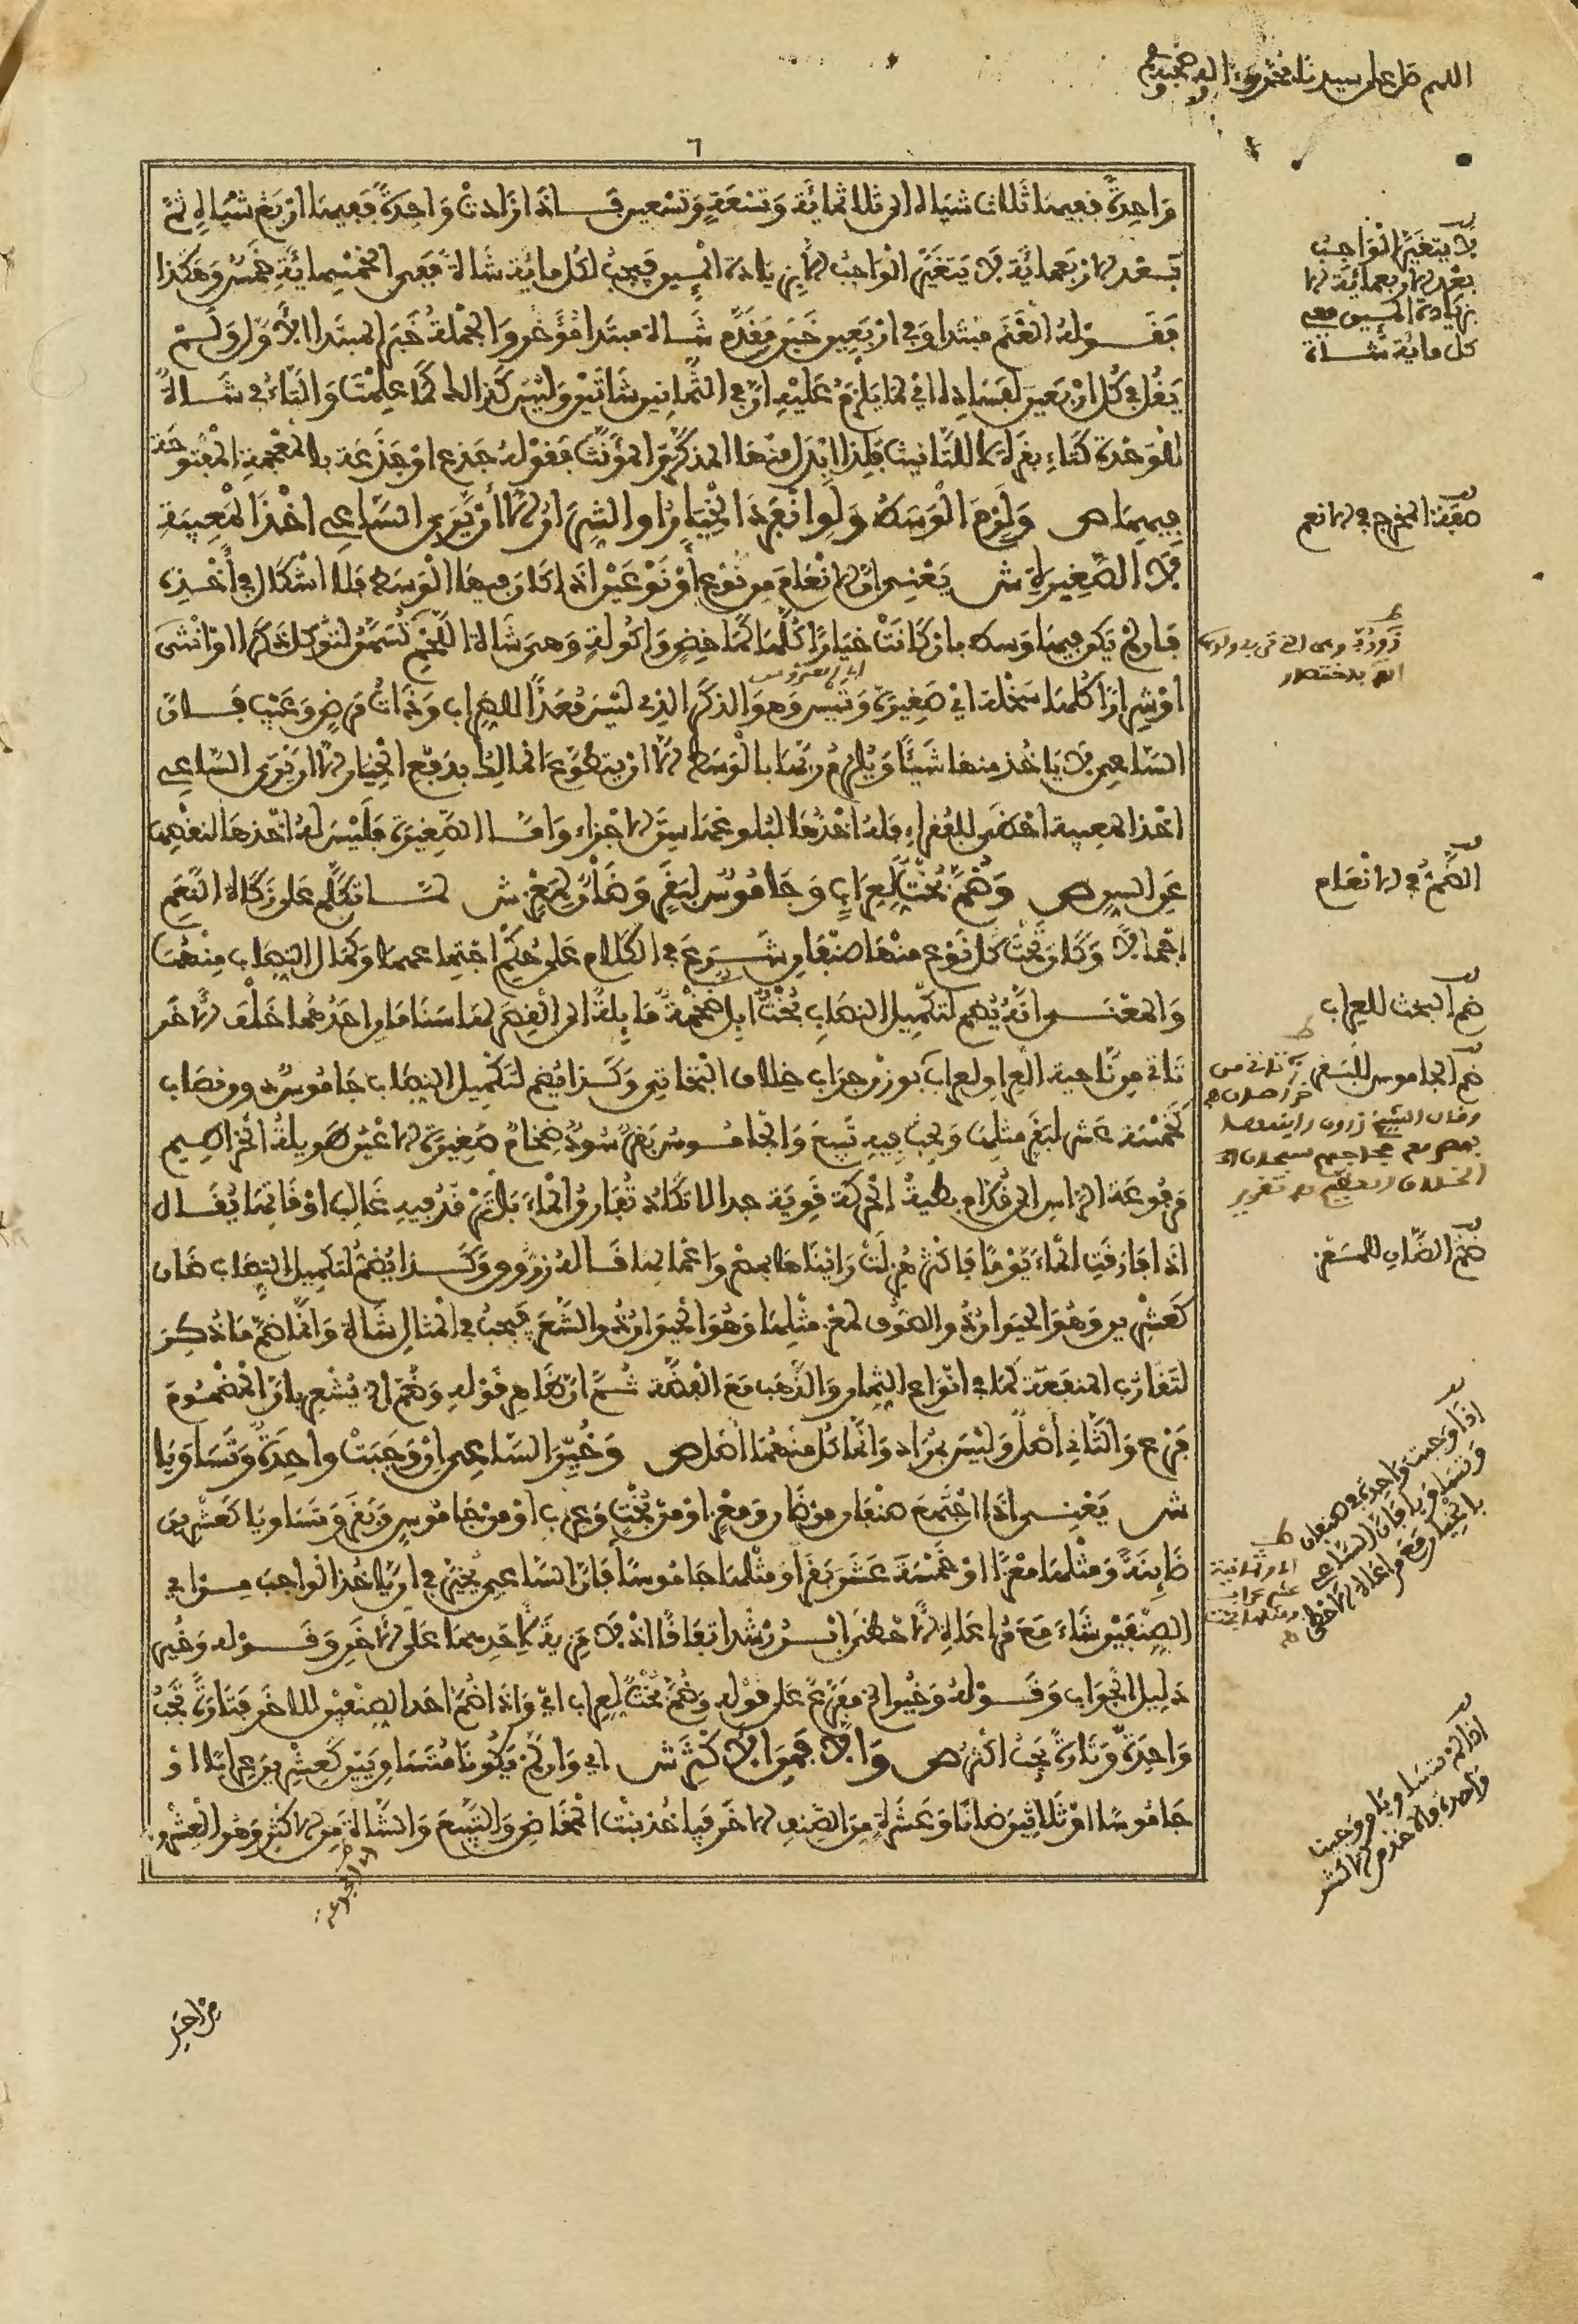 اللهم صل على سيدنا محمد وءاله وصحبه
٦
وَاحِدَةً ففيها ثلاث شياه الى ثلاثمائة وَتسْعَةٍ وَتسْعين فــاذا زادتْ وَاحِدَةٌ ففيها ارْبع شيَاهٍ ثم
بَـعْد الارْبعمائة لا يَتغيّر الوَاجبُ الا بزيادة المئين فيجبُ لكل مائة شاة ففى الخمسمائة خمسٌ وَهكذا
فقــوْله الغنم مبْتدا وفى ارْبعين خبَر مقدّم شــاة مبتدا مُؤخر وَالجملة خبَر المبتدا الاوّل وَلـمْ
يَقل فى كل ارْبَعين لفسَاده اى لما يلزم عَليْه انّ فى الثمانين شاتين وَليْسَ كذالك كما علمْتَ وَالتاء فى شــاة
للوَحْدة كتاء بقرة لا للتانيث فلذا ابدل منها المذكّر وَالمؤنث فقوْله جذع اوْ جذعة بالمعجمة المفتوحة
فيهما ص وَلزمَ الْوَسَط وَلو انفرَد الخيَارُ او الشرَارُ الا أنْ يَرى السّاعى اخْذ المَعيبَة
لا الصّغيرَة ش يَعْنـى انّ الانعامَ من نوْع أوْ نوْعَيْن اذا كان فيها الوَسَط فلا اشكال فى أخْذه
فان لم يَكن فيها وسط بان كانتْ خيَارًا كلها كماخض وَاكولة وَهىَ شاة اللحم تسَمّن لتؤكل ذكَرا او انثى
اوْ شرَارًا كلها سَخْلة اى صَغيرَة وَتيس وَهوَ الذكَر الذى ليْسَ مُعَدًّا للضراب وَذاتُ مَرض وَعَيْب فــانّ
السّاعى لا يَاخُذ منها شَيْئًا وَيُلزمُ ربّها بالوَسَط الا ان يتطوّع المالك بدَفع الخيار الا ان يَرى السّاعى
اخذ المعيبة احظى للفقراء فله اخْذُها لبُلوغها سنّ الاجْزاء وَامّــا الصّغيرَة فليْسَ له اخذهَا لنقصها
عَن السن ص وَضُمَّ بُخْتٌ لعرَاب وَجَامُوسٌ لبَقَرٍ وَضَأْنٌ لمَعْزٍ ش لمّــا تكلم عَلى زكاة النعَم
اجْمالا وَكان تحْتَ كل نوْع منهَا صنفان شــرَعَ فى الكلام عَلى حُكم اجْتماعهما وَكمال النصاب منهمَا
وَالمعْنــى انّهُ يُضم لتكميل النصَاب بُخْتٌ ابل ضخمة مَايلة الى القصَر لها سَنامَان احَدُهُما خَلفَ الاخَر
تاتى من نَاحية العراق لعراب بوزن جراب خلاف البخاتى وَكــذا يُضم لتكميل النصَاب جَاموسٌ دون نصَاب
كَخَمْسَة عَشر لبَقر مثلها وَيجبُ فيه تبيع وَالجامُــوسُ بَقرٌ سُودٌ ضخامٌ صَغيرَة الاعْين طويلة الخراطيم
مَرفوعَة الرّاس الى قدّام بطيئة الحرَكة قويّة جدا لا تكاد تُفارق الماء بَل ترْقد فيه غالب اوْقاتها يُقــال
اذا فارَقت الماءَ يَوْمًا فاكثر هُزلتْ رَايْناها بمصْر وَاعْمالها قــاله زرّوق وَكَــذا يُضمّ لتكميل النصَاب ضان
كعشرين وَهُوَ الحيَوَان ذو الصّوف لمعْز مثلها وَهُوَ الحيَوَان ذو الشّعَر فيجبُ فى المثال شاة وَانّما ضمّ مَا ذكرَ
لتقارُب المنفعَة كما فى انوَاع الثمار وَالذهَب مَعَ الفضّة ثــمّ انّ ظاهرَ قوْله وَضُمّ الخ يُشْعر بانّ المضْمُومَ
فرع وَالثانى أصْلٌ وَليْسَ بمُرَاد وَانّما كل منهُما أصْل ص وَخُيِّرَ السّاعى انْ وَجَبَتْ واحدَةٌ وَتسَاوَيَا
ش يَعْنـى اذا اجْتمَعَ صنفان من ضان وَمعْز اوْ من بُخْت وَعرَاب اوْ من جَامُوس وَبَقر وَتسَاويا كعشْرين
ضَائنة وَمثلها مَعْزًا اوْ خمْسَة عَشَرَ بَقرًا وَمثلها جامُوسًا فانّ السّاعى يُخيّر فى ان يّاخُذ الواجب مــن اى
الصنفيْن شاءَ مَعَ مُراعَاة الاحْظى ابــنُ رُشْد اتفاقًا اذ لا مَزيّة لاحدهما عَلى الاخَر وَقــوْله وَخُيّر
دَليل الجوَاب وَقــوْلهُ وَخُيّر الخ مفرّعٌ عَلى قوْله وَضُمَّ بُخْتٌ لعراب اى وَاذا ضُمّ احَد الصنفيْن للاخَر فتارَةً تجبُ
وَاحدَةٌ وَتارَةً يَجبُ اكْثر ص وَالا فمنَ الاكْثر ش اى وَان لم يَكُونَا مُتسَاويَيْن كَعشْرين عرابًا اوْ
جَامُوسًا اوْ ثلاثينَ ضَانًا وَعَشَرَةٍ منَ الصّنف الاخَر فياخُذ بنْت المخاض وَالتبيعَ وَالشّاة منَ الاكثر وَهوَ العشْرون
لا يتغيّر الوَاجبُ
بعْد الاربعمائة الا
بزيادة المئين ففى
كل مائة شــاة
صفة المخرج فى الانعم
الضمّ فى الانعام
ضم البخت للعراب
ضم الجاموس للبقر
وقال الشيخ زروق رايتها
ضمّ الضان للمعز
اذا وَجبت واحدة فى صنفين
وتساويا فان السّاعى
بالخيار مع مراعاة الاحظى
اذا لم يتساويا ووجبت
واحدة فالاخذ من الاكثر
من اخر